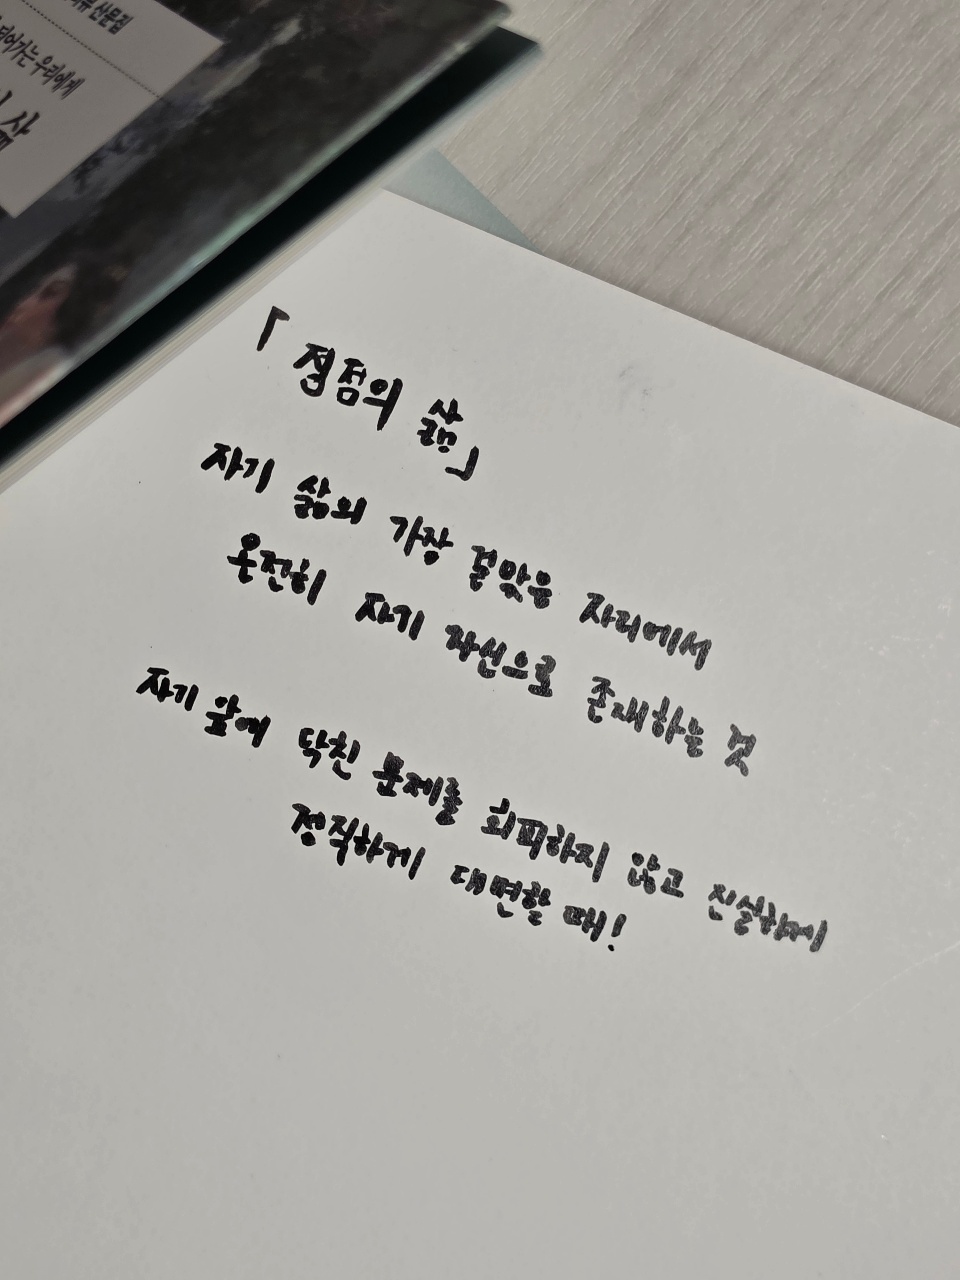 산문집
우리에게
삶
「절점의 삶」
자기 삶의 가장 걸맞은 자리에서
온전히 자기 자신으로 존재하는 것
자기 앞에 닥친 문제를 회피하지 않고 진실하게
정직하게 대면할 때!